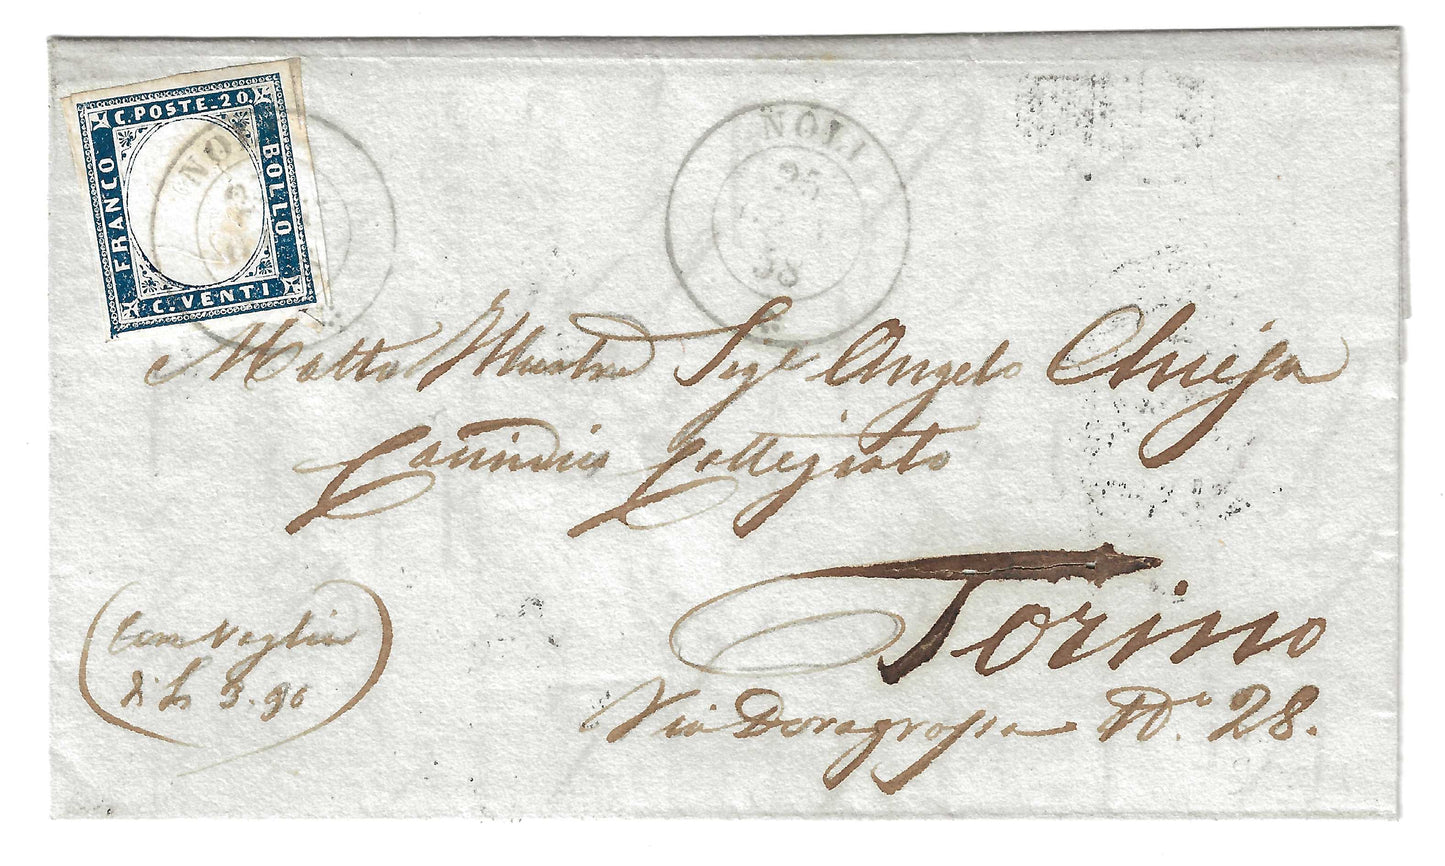 C. POSTE. 20.
FRANCO
BOLLO
C. VENTI
NOLI
NOLI
58
Molto Illustre Sigr Angelo Chieja
Causidico Collegiato
Torino
Via Doragrossa No. 28.
Con Vaglia
di L 3. 90